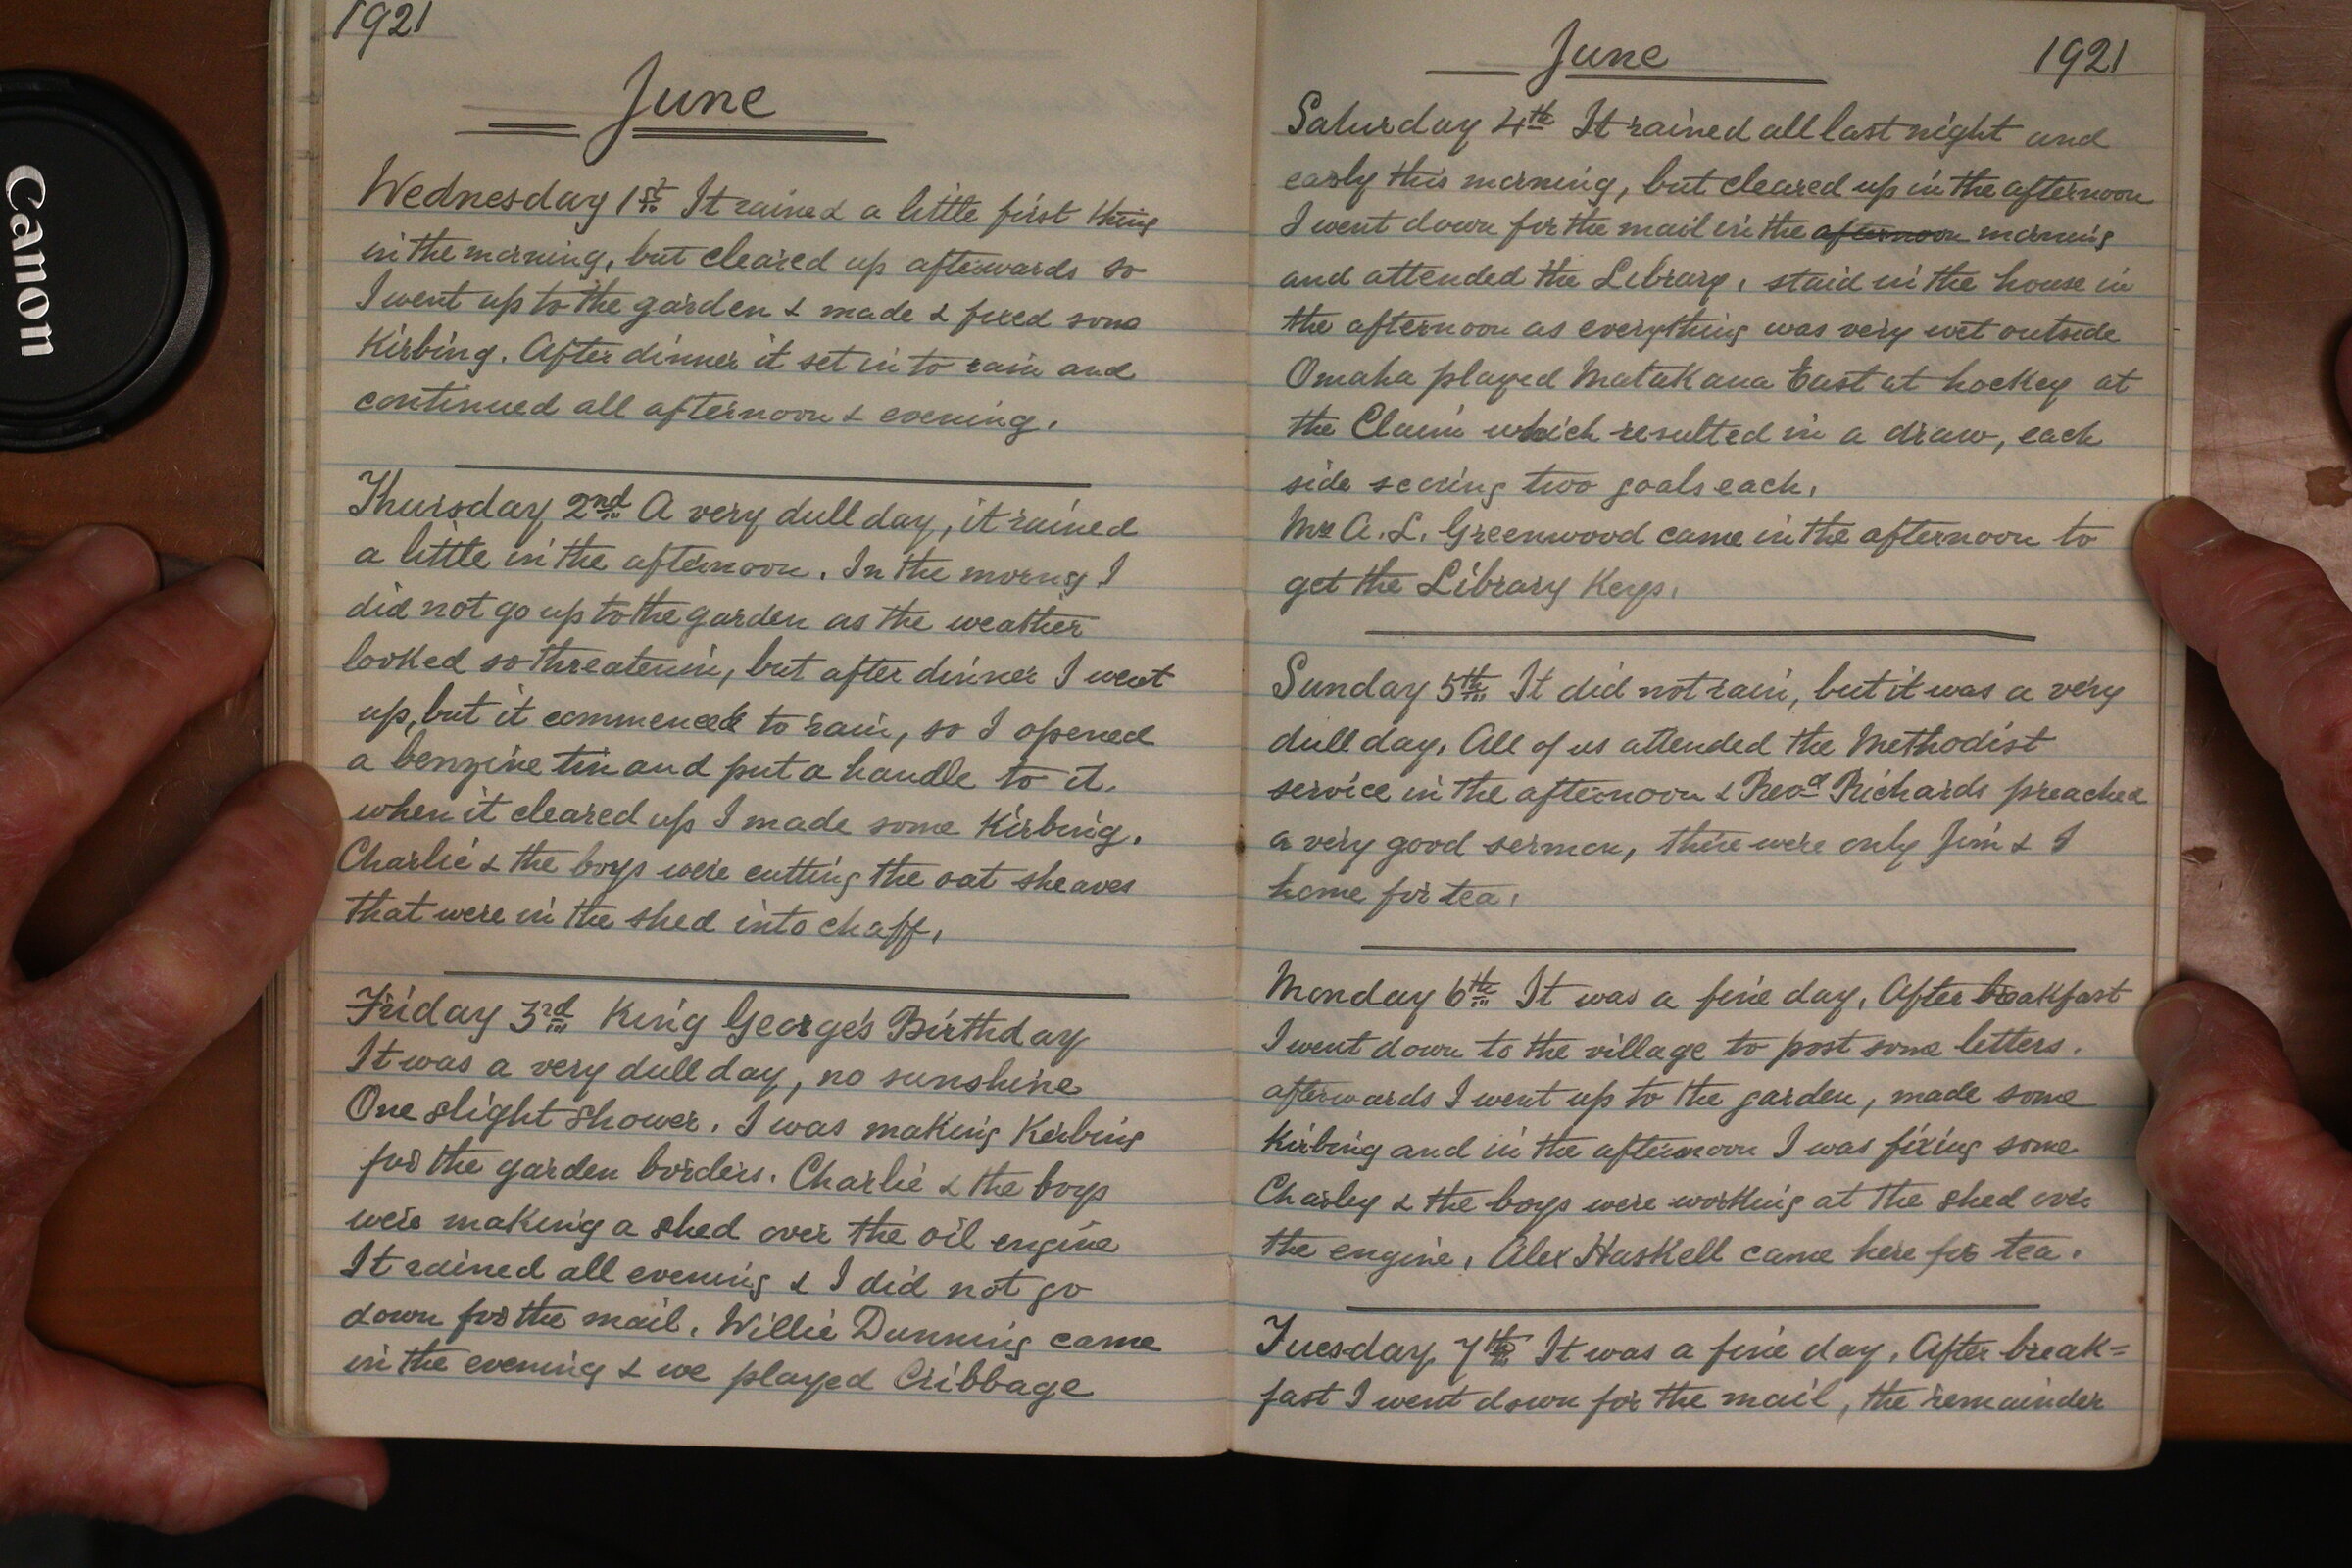 Canon
1921
June
Wednesday 1st It rained a little first thing
in the morning, but cleared up afterwards so
I went up to the garden & made & fixed some
Kirbing. After dinner it set in to rain and
continued all afternoon & evening.
Thursday 2nd A very dull day, it rained
a little in the afternoon. In the morng I
did not go up to the garden as the weather
looked so threatenin, but after dinner I went
up, but it commenced to rain, so I opened
a benzine tin and put a handle to it.
when it cleared up I made some Kirbing.
Charlie & the boys were cutting the oat sheaves
that were in the shed into chaff.
Friday 3rd King George's Birthday
It was a very dull day, no sunshine
One slight shower. I was making Kirbing
for the garden borders. Charlie & the boys
were making a shed over the oil engine
It rained all evening & I did not go
down for the mail. Willie Dunning came
in the evening & we played Cribbage
June 1921
Saturday 4th It rained all last night and
early this morning, but cleared up in the afternoon
I went down for the mail in the afternoon morning
and attended the Library, staid in the house in
the afternoon as everything was very wet outside
Omaha played Matakana East at hockey at
the Claim which resulted in a draw, each
side scoring two goals each.
Mrs A. L. Greenwood came in the afternoon to
get the Library Keys.
Sunday 5th It did not rain, but it was a very
dull day. All of us attended the Methodist
service in the afternoon & Revd Richards preached
a very good sermon, there were only Jim & I
home for tea.
Monday 6th It was a fine day. After breakfast
I went down to the village to post some letters.
afterwards I went up to the garden, made some
Kirbing and in the afternoon I was fixing some
Charley & the boys were working at the shed over
the engine. Alex Haskell came here for tea.
Tuesday 7th It was a fine day. After break=
fast I went down for the mail, the remainder